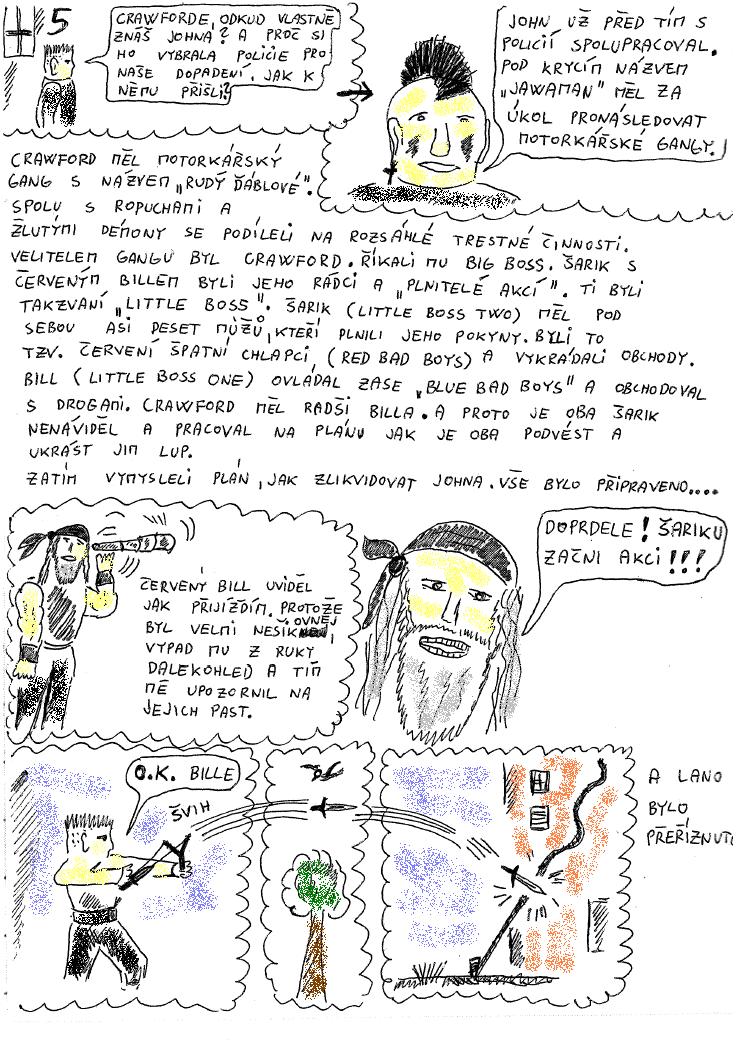 5
CRAWFORDE, ODKUD VLASTNĚ
ZNÁŠ JOHNA? A PROČ SI
HO VYBRALA POLICIE PRO
NAŠE DOPADENÍ. JAK K
NĚMU PŘIŠLI?
JOHN UŽ PŘED TÍM S
POLICIÍ SPOLUPRACOVAL.
POD KRYCÍM NÁZVEM
„JAWAMAN" MĚL ZA
ÚKOL PRONÁSLEDOVAT
MOTORKÁŘSKÉ GANGY.
CRAWFORD MĚL MOTORKÁŘSKÝ
GANG S NÁZVEM „RUDÝ ĎÁBLOVÉ".
SPOLU S ROPUCHAMI A
ŽLUTÝMI DÉMONY SE PODÍLELI NA ROZSÁHLÉ TRESTNÉ ČINNOSTI.
VELITELEM GANGU BYL CRAWFORD. ŘÍKALI MU BIG BOSS. ŠARIK S
ČERVENÝM BILLEM BYLI JEHO RÁDCI A „PLNITELÉ AKCÍ". TI BYLI
TAKZVANÍ „LITTLE BOSS". ŠARIK (LITTLE BOSS TWO) MĚL POD
SEBOU ASI DESET MŮŽŮ, KTEŘÍ PLNILI JEHO POKYNY. BYLI TO
TZV. ČERVENÍ ŠPATNÍ CHLAPCI, (RED BAD BOYS) A VYKRÁDALI OBCHODY.
BILL (LITTLE BOSS ONE) OVLÁDAL ZASE „BLUE BAD BOYS" A OBCHODOVAL
S DROGAMI. CRAWFORD MĚL RADŠI BILLA. A PROTO JE OBA ŠARIK
NENÁVIDĚL A PRACOVAL NA PLÁNU JAK JE OBA PODVÉST A
UKRÁST JIM LUP.
ZATÍM VYMYSLELI PLÁN, JAK ZLIKVIDOVAT JOHNA. VŠE BYLO PŘIPRAVENO....
ČERVENÝ BILL UVIDĚL
JAK PŘIJÍŽDÍM. PROTOŽE
BYL VELMI NEŠIKOVNEJ,
VYPAD MU Z RUKY
DALEKOHLED A TÍM
MĚ UPOZORNIL NA
JEJICH PAST.
DOPRDELE! ŠARIKU
ZAČNI AKCI!!!
O.K. BILLE
ŠVIH
A LANO
BYLO
PŘEŘÍZNUTO